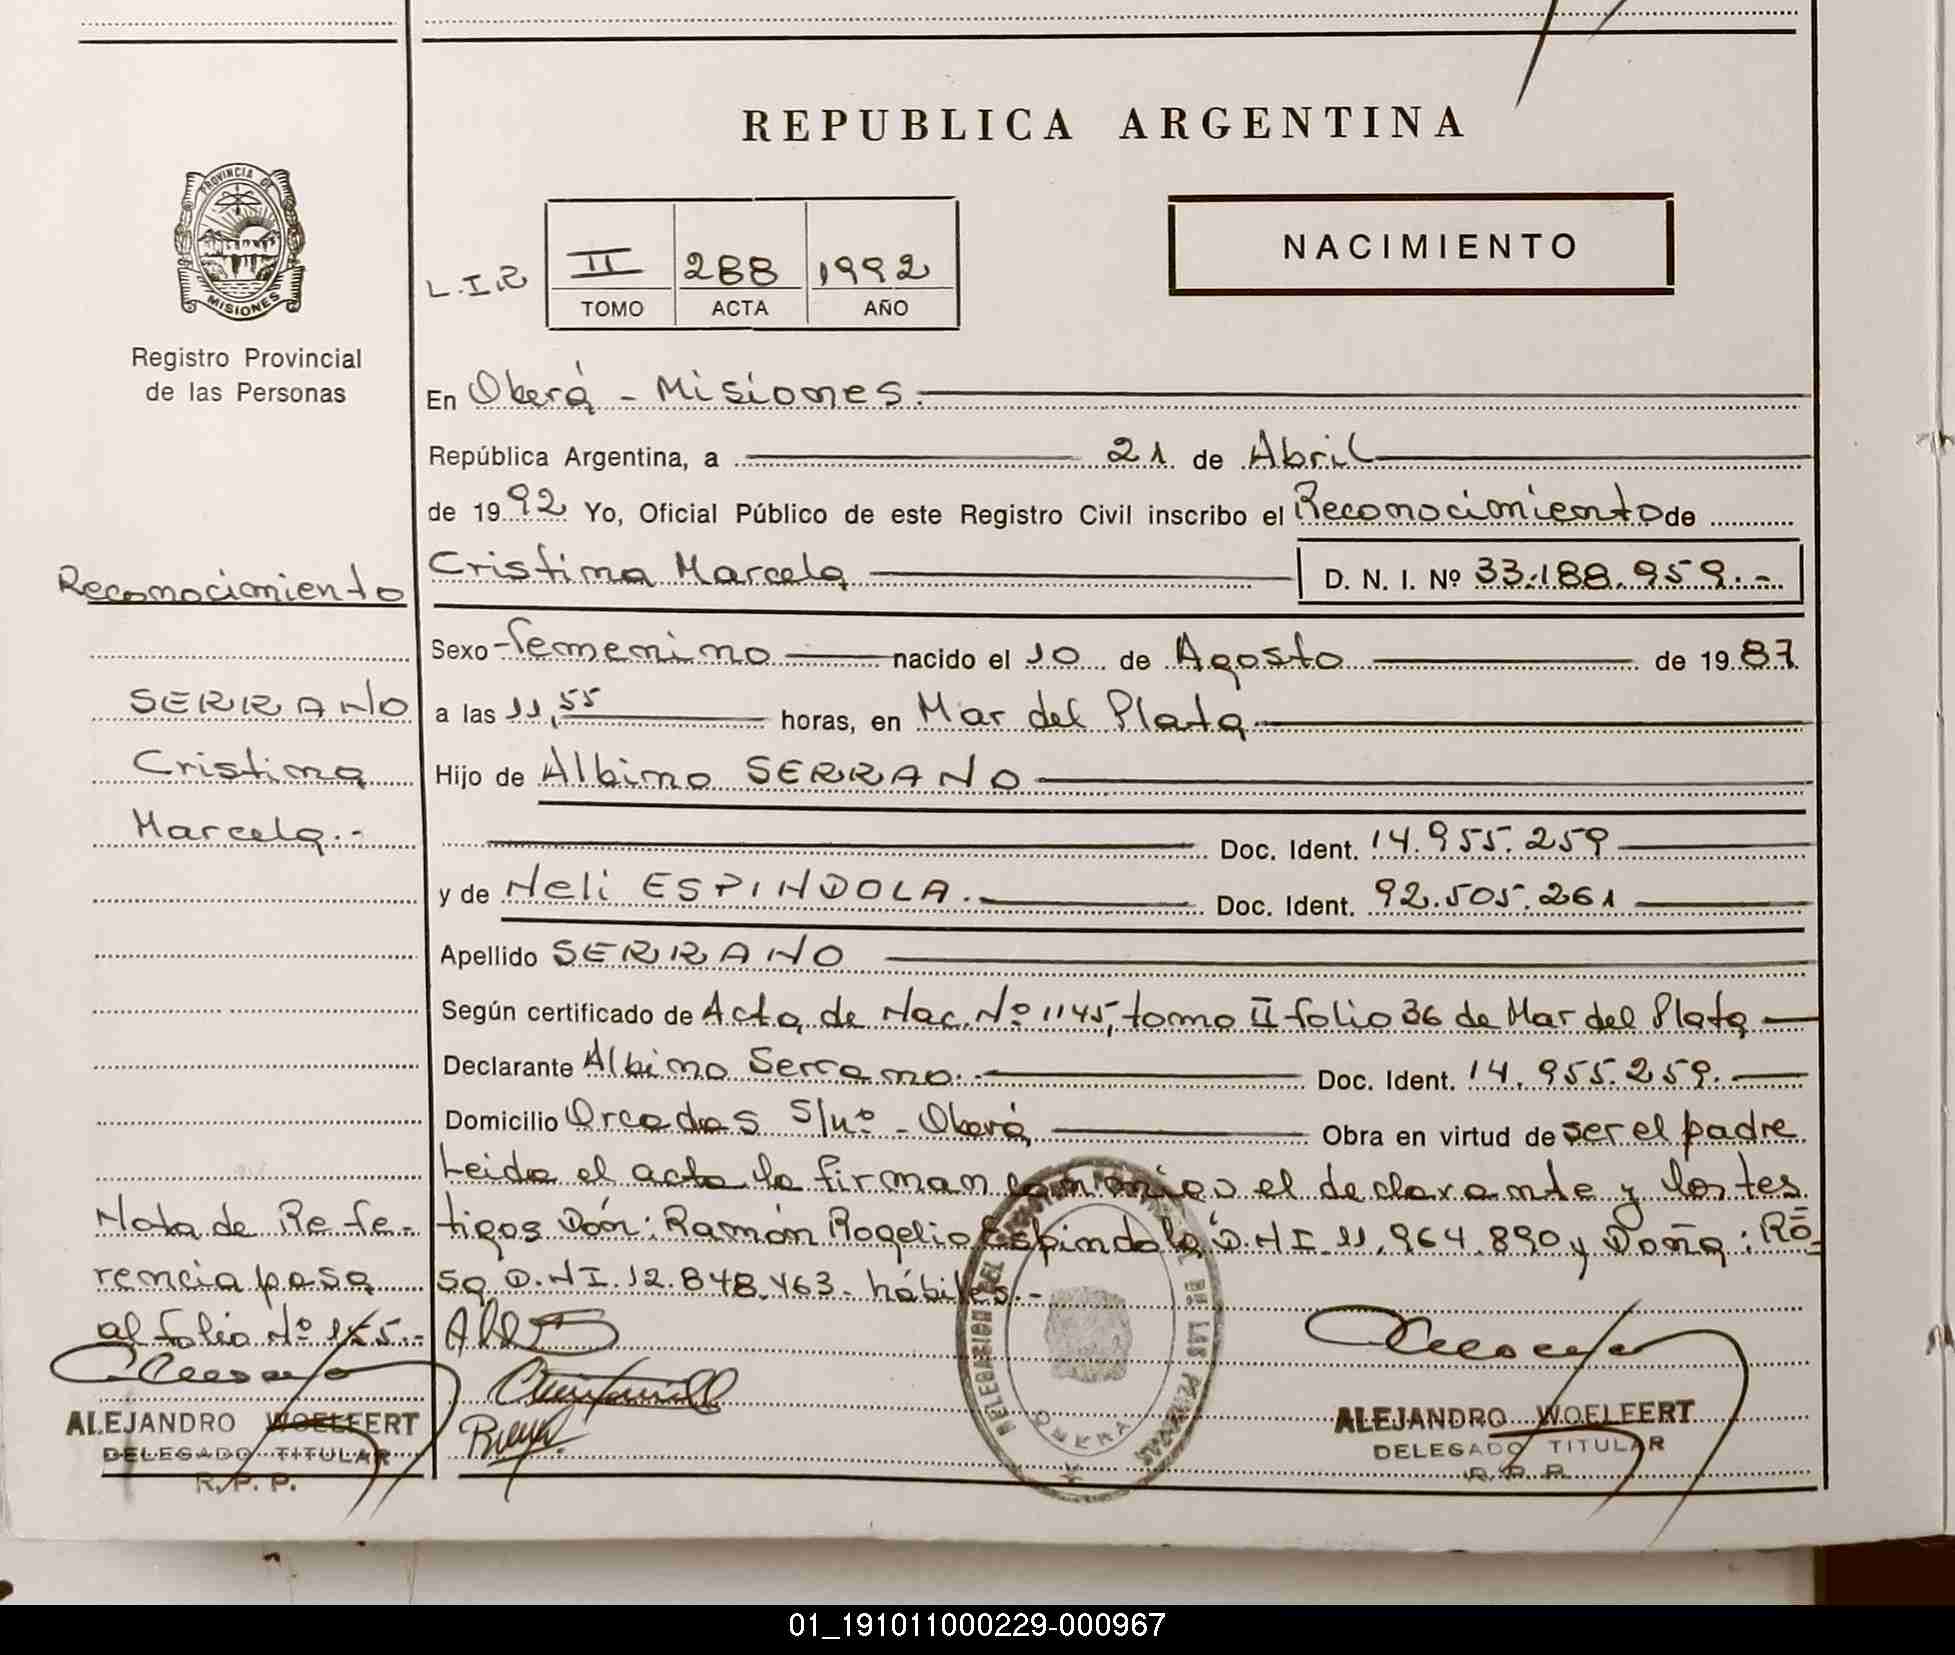 REPUBLICA ARGENTINA
PROVINCIA DE
MISIONES
Registro Provincial
de las Personas
L.I.R
II 288 1992
TOMO ACTA AÑO
NACIMIENTO
En Oberá - Misiones.
República Argentina, a 21 de Abril
de 1992 Yo, Oficial Público de este Registro Civil inscribo el Reconocimiento de
Cristina Marcela D. N. I. Nº 33.188.959.-
Sexo femenino nacido el 10 de Agosto de 1987
a las 11,55 horas, en Mar del Plata
Hijo de Albino SERRANO
Doc. Ident. 14.955.259
y de Neli ESPINDOLA. Doc. Ident. 92.505.261
Apellido SERRANO
Según certificado de Acta de Nac. Nº 1145, tomo II folio 36 de Mar del Plata
Declarante Albino Serrano. Doc. Ident. 14.955.259.
Domicilio Orcadas S/nº - Oberá Obra en virtud de ser el padre
Leida el acta la firman conmigo el declarante y los tes
tigos Dón: Ramón Rogelio Espindola D.N.I. 11.964.890 y Doña: Ro=
sa D.N.I. 12.848.463. hábiles.-
Reconocimiento
SERRANO
Cristina
Marcela.-
Nota de Refe-
rencia pasa
al folio Nº 145.-
ALEJANDRO WOELFERT
DELEGADO TITULAR
R. P. P.
DELEGACION DEL DE LAS PERSONAS
OBERA
ALEJANDRO WOELFERT
DELEGADO TITULAR
R. P. P.
01_191011000229-000967